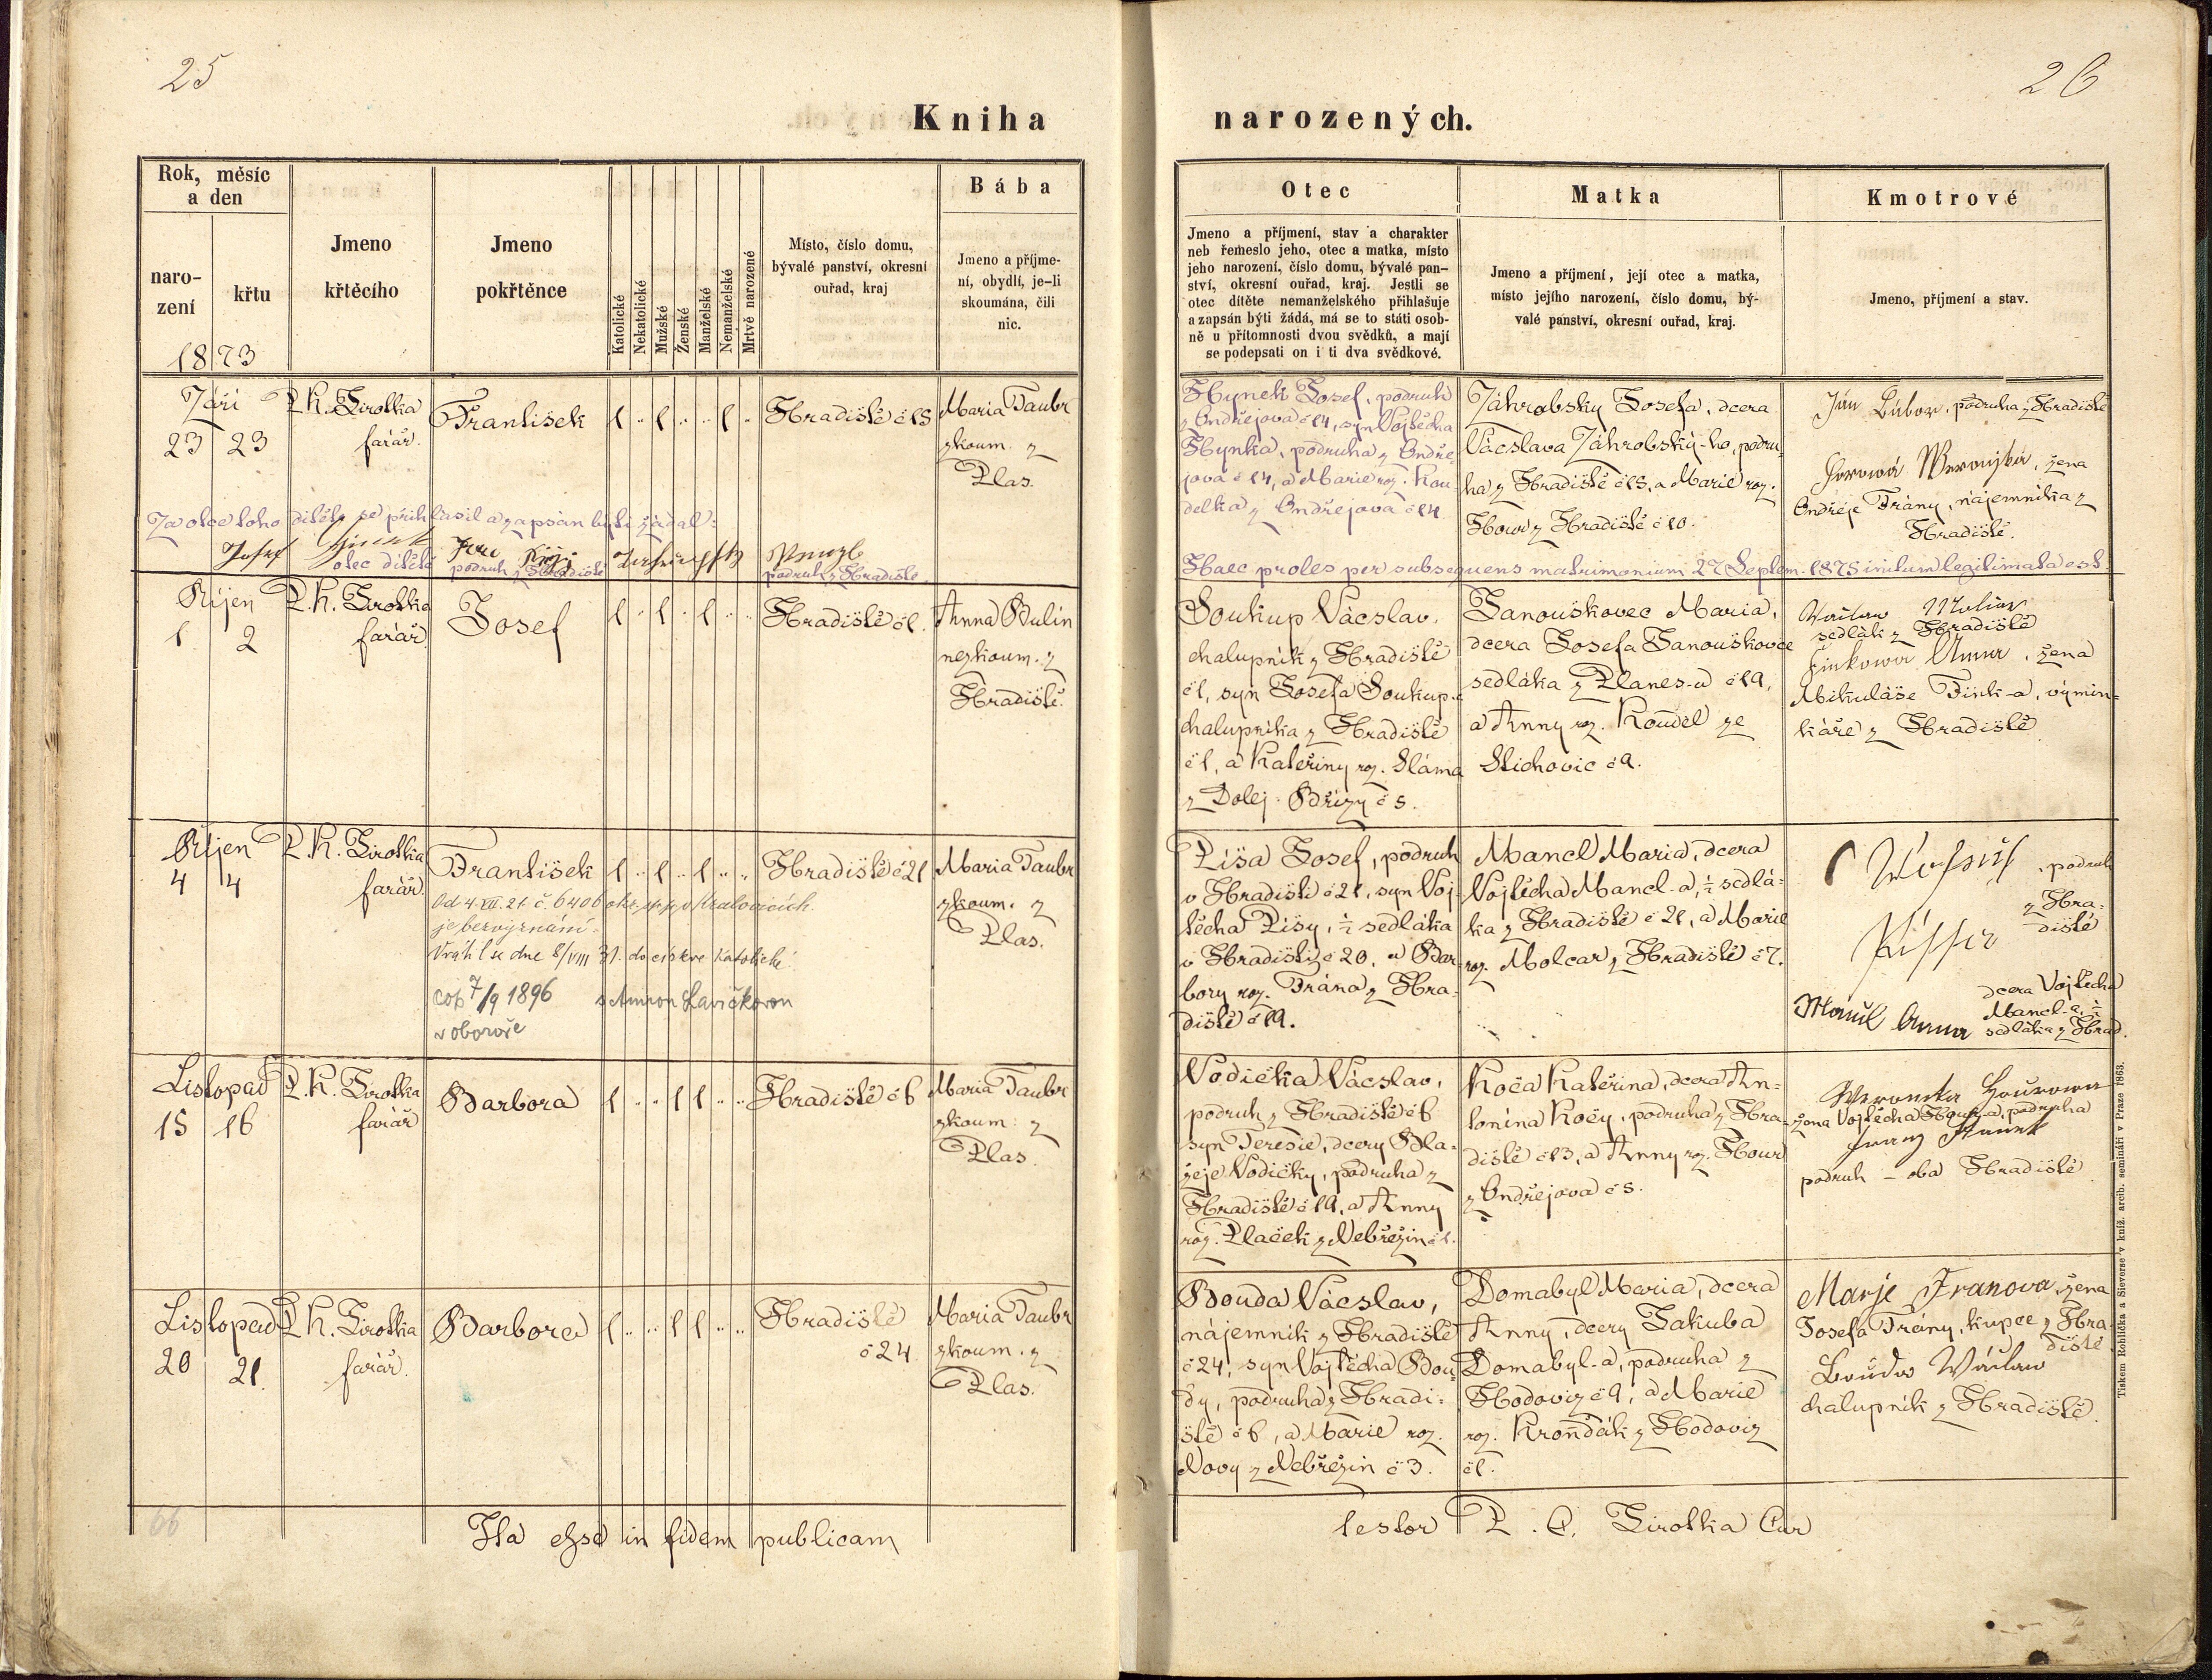 25
26
Kniha
narozených.
Rok, měsíc
a den
naro-
zení
křtu
1873
Jmeno
křtěcího
Jmeno
pokřtěnce
Katolické
Nekatolické
Mužské
Ženské
Manželské
Nemanželské
Mrtvě narozené
Místo, číslo domu,
bývalé panství, okresní
ouřad, kraj
Bába
Jmeno a příjme-
ní, obydlí, je-li
skoumána, čili
nic.
Otec
Jmeno a příjmení, stav a charakter
neb řemeslo jeho, otec a matka, místo
jeho narození, číslo domu, bývalé pan-
ství, okresní ouřad, kraj. Jestli se
otec dítěte nemanželského přihlašuje
a zapsán býti žádá, má se to státi osob-
ně u přítomnosti dvou svědků, a mají
se podepsati on i ti dva svědkové.
Matka
Jmeno a příjmení, její otec a matka,
místo jejího narození, číslo domu, bý-
valé panství, okresní ouřad, kraj.
Kmotrové
Jmeno, příjmení a stav.
Září
23 23
P. K. Sirotka
farář.
František
1 .. 1 .. .. 1 ..
Hradiště č 15
Maria Taubr
zkoum. z
Plas.
Hynek Josef, podruh
z Ondřejova č 14, syn Vojtěcha
Hynka, podruha z Ondře-
jova č 14, a Marie roz. Kou-
delka z Ondřejova č 14
Záhrobsky Josefa, dcera
Václava Záhrobský-ho, podru-
ha z Hradiště č 15, a Marie roz.
Hour z Hradiště č 10.
Jan Bubor, podruha z Hradiště
žena
Ondřeje Trány, nájemníka z
Hradiště.
Za otce toho dítěte se přihlásil a zapsán býti žádal:
Josef Hinek
otec dítěte
podruh z Hradiště
podruh z Hradiště
Haec proles per subsequens matrimonium 27 Septem. 1875 initum legitimata est.
Říjen
1 2
P. K. Sirotka
farář
Josef
1 .. 1 .. 1 .. ..
Hradiště č 1.
Anna Bulín
nezkoum. z
Hradiště.
Soukup Václav,
chalupník z Hradiště
č 1, syn Josefa Soukup-a
chalupníka z Hradiště
č 1, a Kateřiny roz. Sláma
z Dolej. Břízy č 5.
Janouškovec Maria,
dcera Josefa Janouškovce
sedláka z Planes-u č 19,
a Anny roz. Koudel ze
Stichovic č 9.
Václaw
sedlák z Hradiště
Finkowa Anna, žena
Mikuláše Fink-a, výmin-
káře z Hradiště
Říjen
4 4
P. K. Sirotka
farář
František
1 .. 1 .. 1 .. ..
Hradiště č 21
Maria Taubr
zkoum. z
Plas.
Od 4. VII. 21 č. 6406 okr. sp. p. v Kralovicích
je bezvyznání.
Vrátil se dne 8/VIII 31. do církve katolické.
cop 7/9 1896 s Annou Slavíčkovou
v oboroře
Píša Josef, podruh
v Hradišti č 21, syn Voj-
těcha Píšy, ½ sedláka
v Hradišti č 20, a Bar-
bory roz. Trána z Hra-
diště č 19.
Mancl Maria, dcera
Vojtěcha Mancl-a, ½ sedlá-
ka z Hradiště č 21, a Marie
roz. Molcar z Hradiště č 7.
podruh
z Hra-
diště
Anna
dcera Vojtěcha
Mancl-a, ½
sedláka z Hrad.
Listopad
15 16
P. K. Sirotka
farář
Barbora
1 .. .. 1 1 .. ..
Hradiště č 6
Maria Taubr
zkoum. z
Plas.
Vodička Václav,
podruh z Hradiště č 6
syn Terezie, dcery Bla-
žeje Vodičky, podruha z
Hradiště č 19, a Anny
roz. Plaček z Nebřezin č 1.
Koča Kateřina, dcera An-
tonína Kočy, podruha z Hra-
diště č 13, a Anny roz. Hour
z Ondřejova č 5.
Weronika Hourowa
žena Vojtěcha Hour-a, podruha
podruh – oba Hradiště
Listopad
20 21.
P. K. Sirotka
farář.
Barbora
1 .. .. 1 1 .. ..
Hradiště
č 24
Maria Taubr
zkoum. z
Plas.
Bouda Václav,
nájemník z Hradiště
č 24, syn Vojtěcha Bou-
dy, podruha z Hradi-
ště č 6, a Marie roz.
Novy z Nebřezin č 3.
Domabyl Maria, dcera
Anny, dcery Jakuba
Domabyl-a, podruha z
Hodoviz č 9, a Marie
roz. Kroňďák z Hodoviz
č 1.
Marje Tranova, žena
Josefa Trány, kupce z Hra-
diště
Bouda Wáclaw
chalupník z Hradiště.
66
Ita esse in fidem publicam
testor P. C. Sirotka Cur
Tiskem Rohlíčka a Sieverse v kníž. arcib. semináři v Praze 1863.